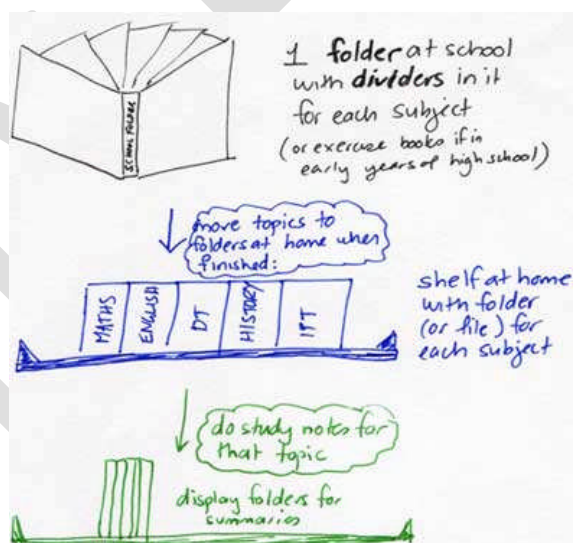 1 folder at school
with dividers in it
for each subject
(or exercise books if in
early years of high school)
SCHOOL FOLDER
move topics to
folders at home when
finished:
MATHS
ENGLISH
DT
HISTORY
IPT
shelf at home
with folder
(or file) for
each subject
do study notes for
that topic
display folders for
summaries